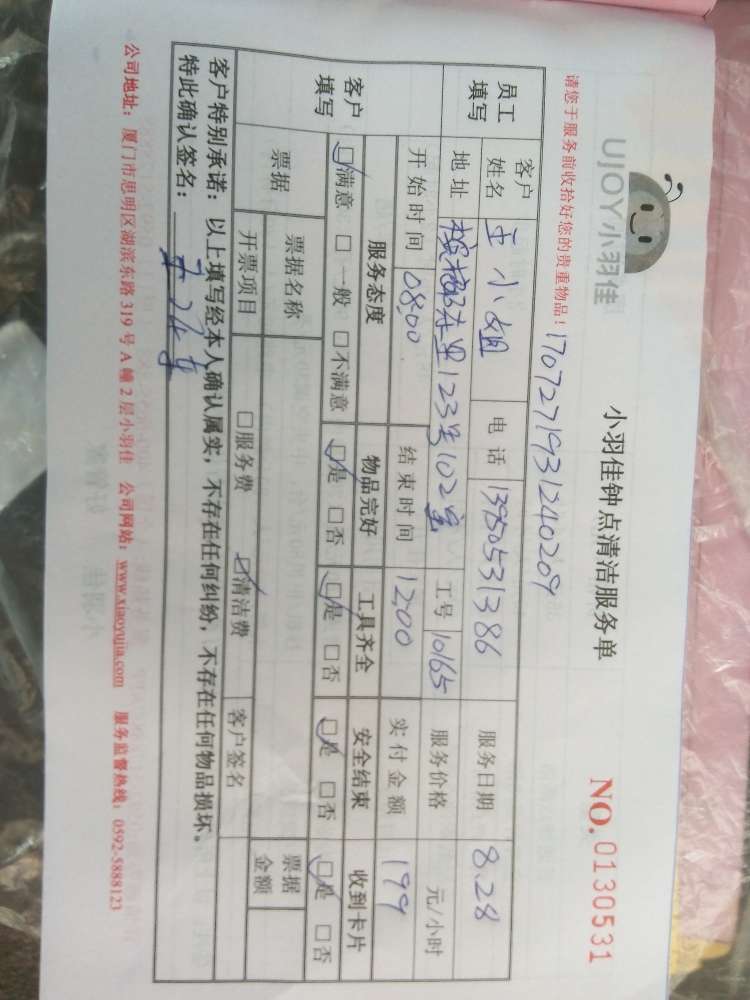 UJOY小羽佳
小羽佳钟点清洁服务单
NO.0130531
请您于服务前收拾好您的贵重物品！
1707271931240209
员工填写 客户姓名 王小姐 电话 13950531386 服务日期 8.28
地址 123号102室 工号 10165 服务价格 元/小时
开始时间 08:00 结束时间 12:00 实付金额 199
客户填写 服务态度 物品完好 工具齐全 安全结束 收到卡片
☑满意 □一般 □不满意 ☑是 □否 ☑是 □否 ☑是 □否 ☑是 □否
票据 票据名称 客户签名 票据金额
开票项目 □服务费 ☑清洁费
客户特别承诺：以上填写经本人确认属实，不存在任何纠纷，不存在任何物品损坏。
特此确认签名：
公司地址：厦门市思明区湖滨东路319号A幢2层小羽佳 公司网站：www.xiaoyujia.com 服务监督热线：0592-5888123